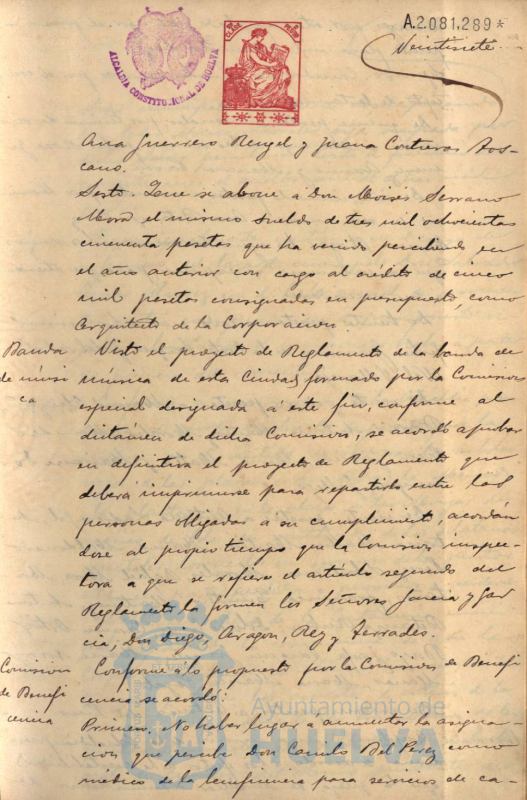 A.2.081.289*
Veintisiete
ALCALDIA CONSTITUCIONAL DE HUELVA
Ana Guerrero Rengel y Juana Contreras Tos-
cano.
Sesto. Que se abone a Don Moisés Serrano
Mora el mismo sueldo de tres mil ochocientas
cincuenta pesetas que ha venido percibiendo en
el año anterior con cargo al crédito de cinco
mil pesetas consignadas en presupuesto, como
Arquitecto de la Corporacion.
Banda
de músi
ca
Visto el proyecto de Reglamento de la banda de
música de esta Ciudad formado por la Comision
especial designada á este fin, conforme al
dictámen de dicha Comision, se acordó aprobar
en definitiva el proyecto de Reglamento que
deberá imprimirse para repartirlo entre las
personas obligadas a su cumplimiento, acordán
dose al propio tiempo que la Comision inspec-
tora á que se refiere el artículo segundo del
Reglamento la formen los Señores Garcia y Gar
cia, Don Diego, Aragon, Rey y Terrades.
Comision
de Benefi
cencia
Conforme á lo propuesto por la Comision de Benefi
cencia se acordó:
Primero. No haber lugar á aumentar la asigna-
cion que percibe Don Camilo Bel Perez como
médico de la beneficencia para servicios de ca-
Ayuntamiento de
HUELVA